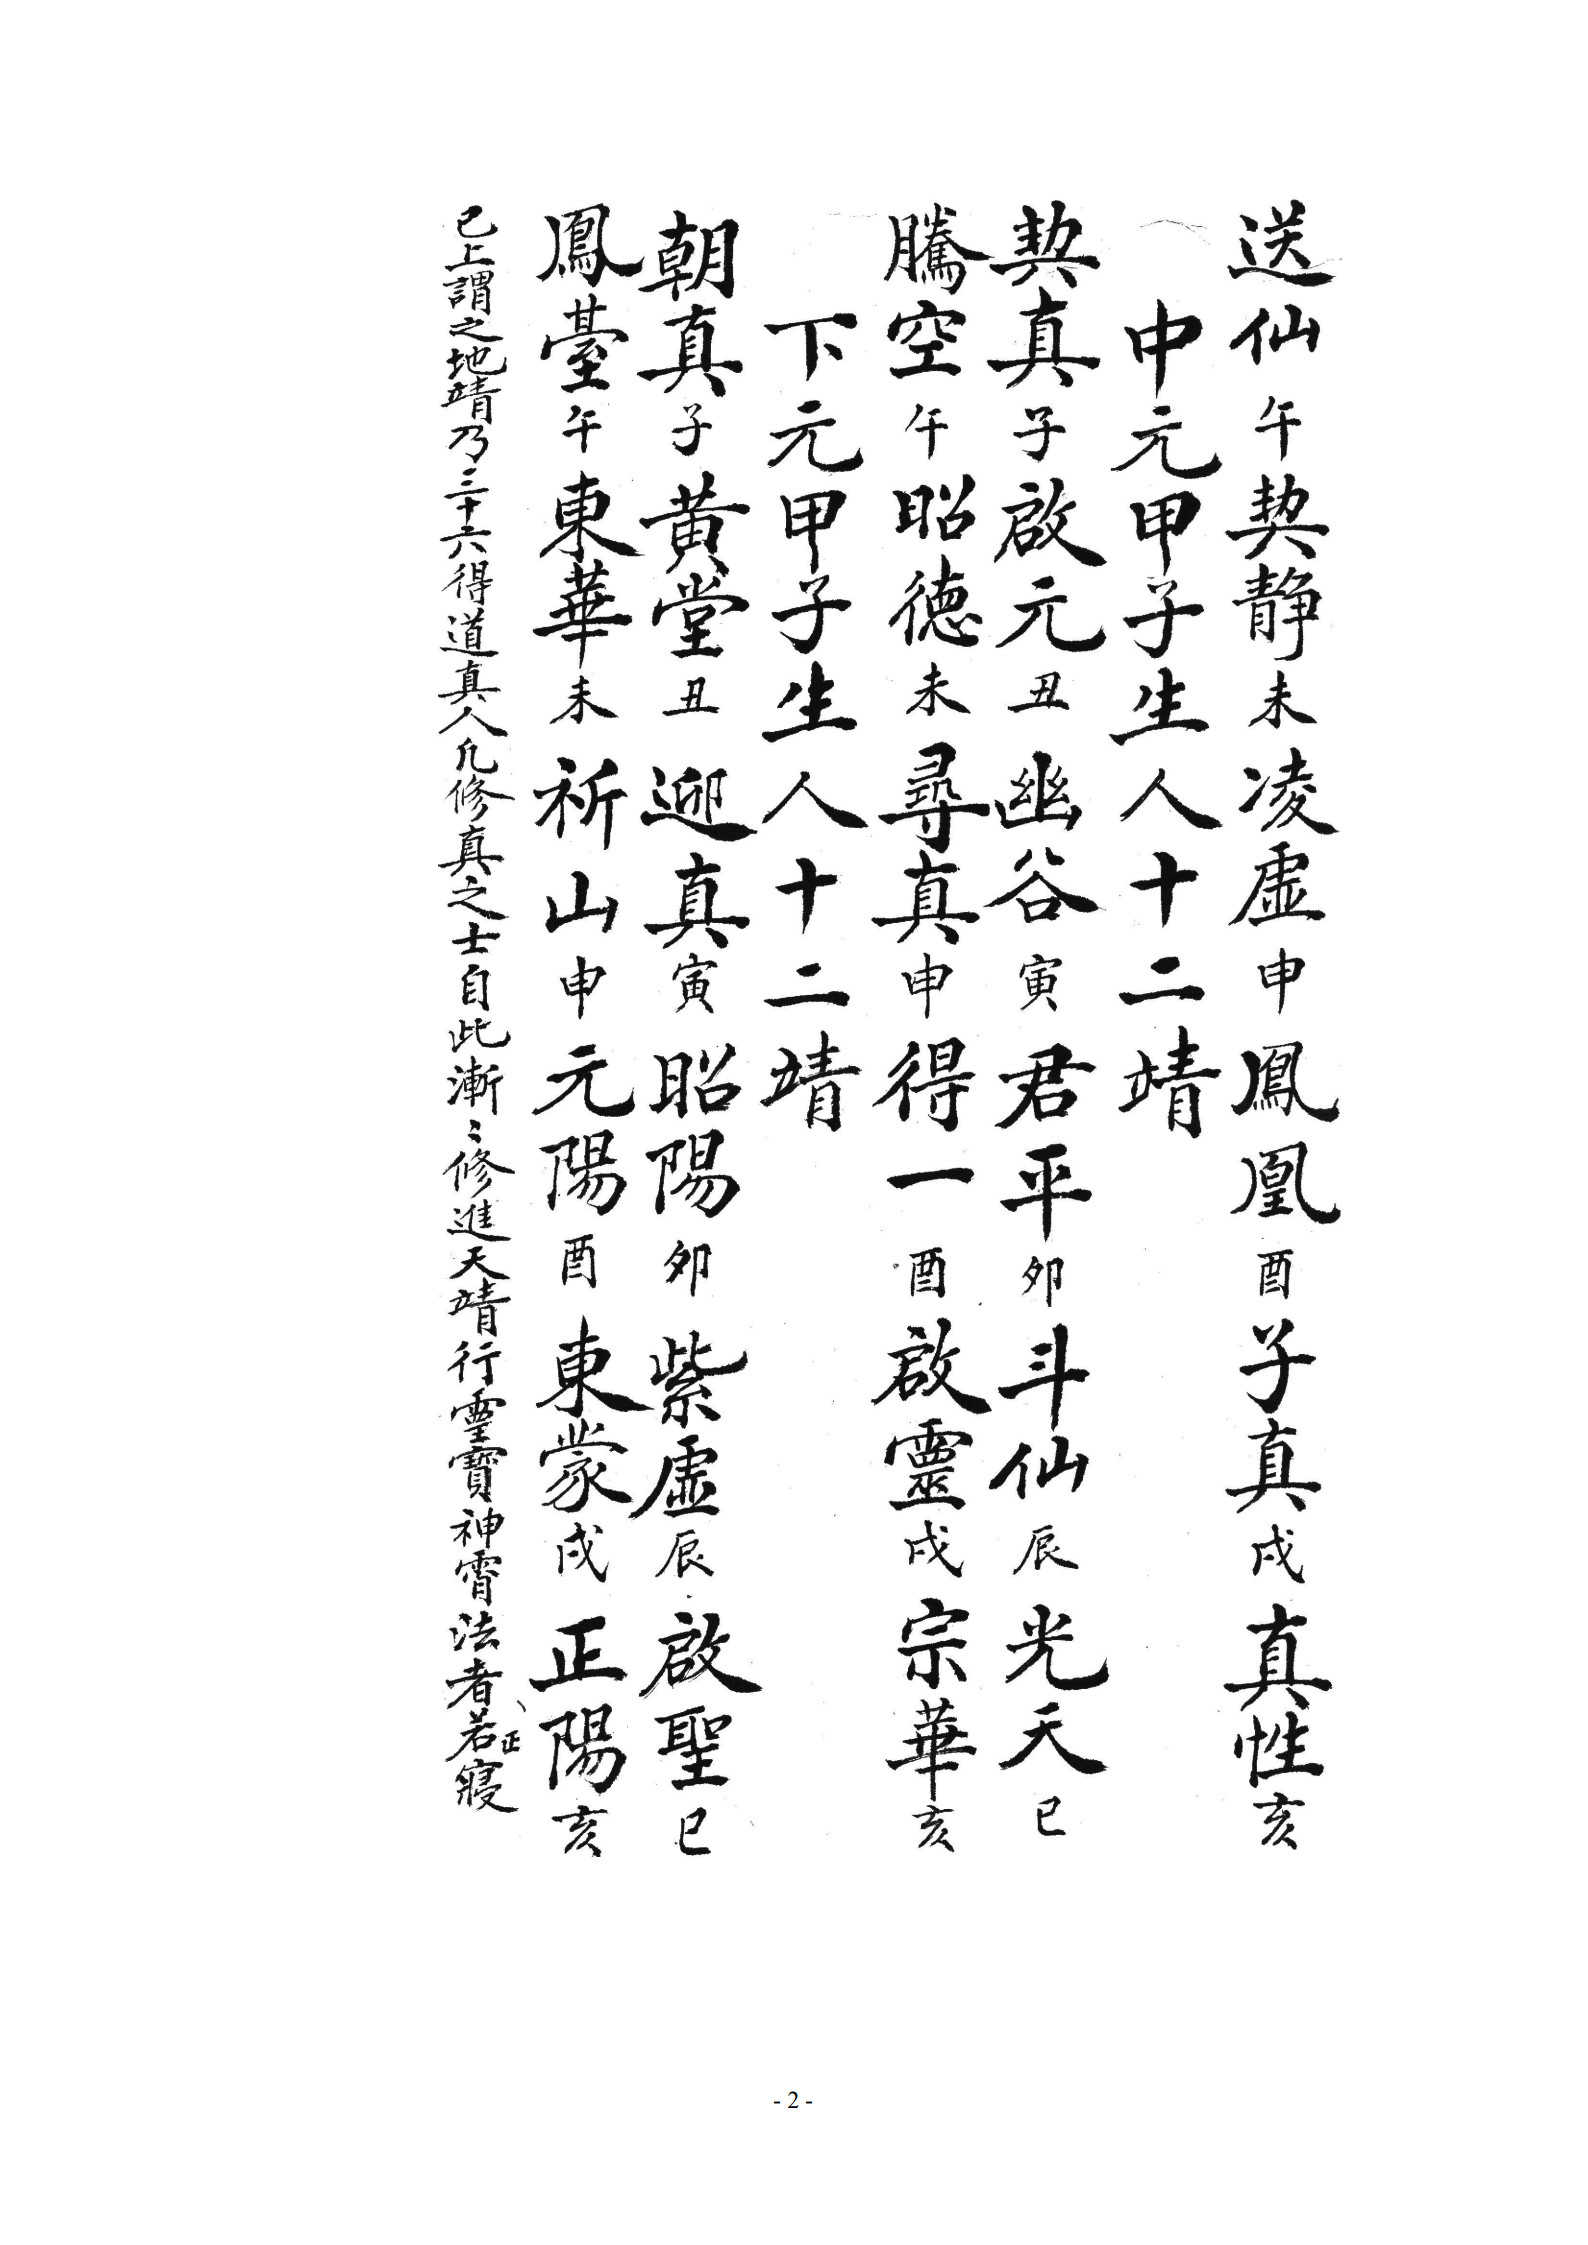 送仙午契静未凌虚申鳳凰酉子真戌真性亥
中元甲子生人十二靖
契真子啟元丑幽谷寅君平卯斗仙辰光天巳
騰空午昭德未尋真申得一酉啟靈戌宗華亥
下元甲子生人十二靖
朝真子黄堂丑迎真寅昭陽卯紫虚辰啟聖巳
鳳臺午東華未祈山申元陽酉東蒙戌正陽亥
已上謂之地靖乃三十六得道真人凡修真之士自此漸〻修進天靖行靈寶神霄法者若寢
正
- 2 -